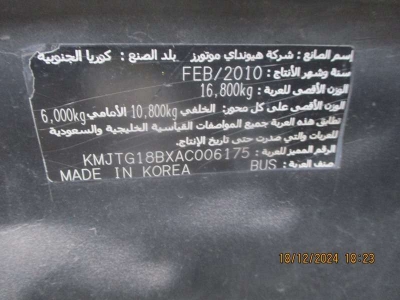 إسم الصانع : شركة هيونداي موتورز بلد الصنع : كوريا الجنوبية
سنة وشهر الأنتاج : FEB/2010
الوزن الأقصى للعربة : 16,800kg
الوزن الأقصى على كل محور: الخلفي 10,800kg الأمامي 6,000kg
تطابق هذه العربة جميع المواصفات القياسية الخليجية والسعودية
للعربات والتي كانت سارية في تاريخ الإنتاج.
الرقم المميز للعربة : KMJTG18BXAC006175
صنف العربة : BUS MADE IN KOREA
18/12/2024 18:23